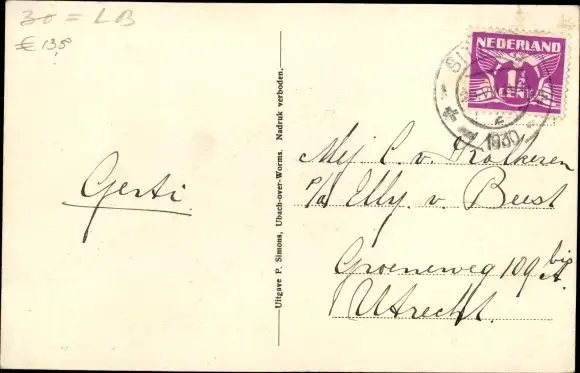 30 = LB
€ 13,5
NEDERLAND
1½
CENT
1930
Gerti
Uitgave P. Simons, Ubach-over-Worms. Nadruk verboden.
Mej C. v. Kolkeren
p/a Elly. v. Beest
Groeneweg 109 bis A.
Utrecht.